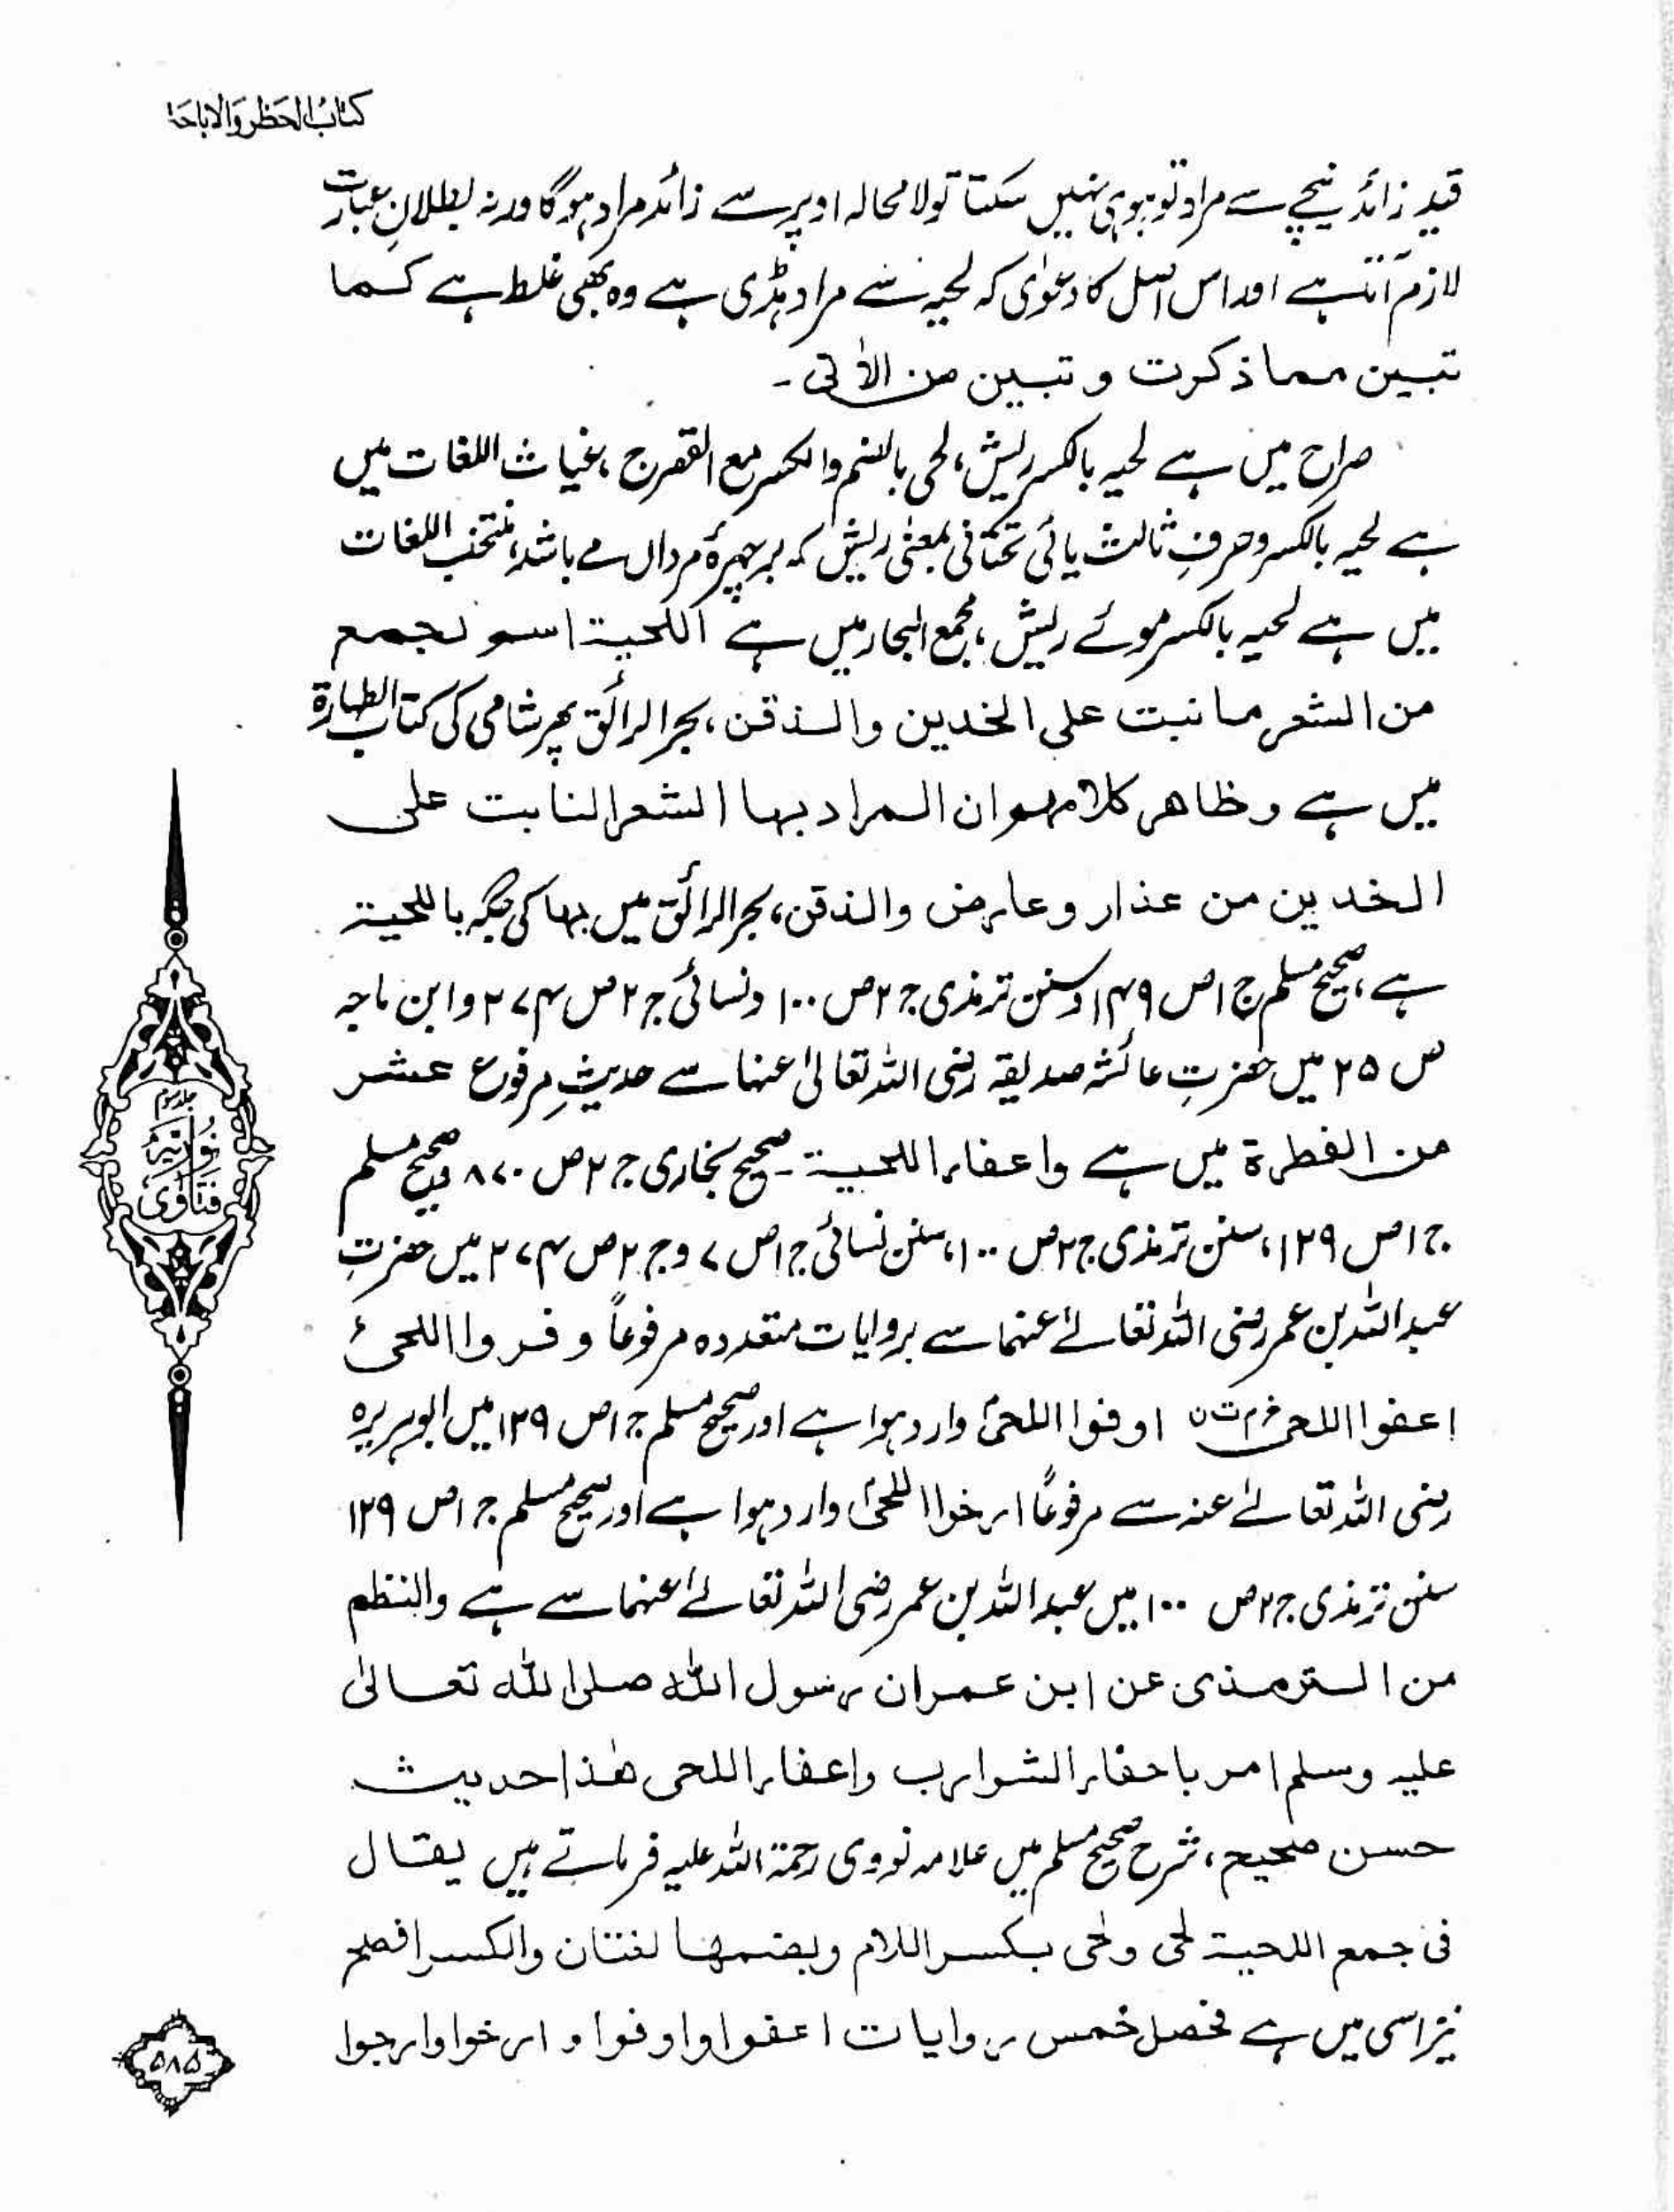 کتابُ الحَظر وَالاباحَۃ
قیدِ زائد نیچے سے مراد تو ہو ہی نہیں سکتا تو لا محالہ اوپر سے زائد مراد ہوگا ورنہ بطلانِ عبارت
لازم آتا ہے اور اس اصل کا دعوٰی کہ لحیہ سے مراد ہڈی ہے وہ بھی غلط ہے کما
تبین مما ذکرت و تبین من الاٰتی۔
صراح میں ہے لحیہ بالکسر ریش، لحی بالضم والکسر مع القصر ج ، غیاث اللغات میں
ہے لحیہ بالکسر و حرفِ ثالث یائی تحتانی بمعنٰی ریش کہ بر چہرۂ مرداں مے باشد، منتخب اللغات
میں ہے لحیہ بالکسر موئے ریش ، مجمع البحار میں ہے اللحیۃ اسم لجمع
من الشعر ما نبت علی الخدین والذقن ، بحر الرائق پھر شامی کی کتاب الطہارۃ
میں ہے وظاھر کلامہم ان المراد بہا الشعر النابت علی
الخدین من عذار و عارض والذقن، بحر الرائق میں بہا کی جگہ باللحیۃ
ہے ، صحیح مسلم ج ۱ ص ۱۴۹ و سنن ترمذی ج ۲ ص ۱۰۰ و نسائی ج ۲ ص ۲۷۴ و ابن ماجہ
ص ۲۵ میں حضرتِ عائشہ صدیقہ رضی اللہ تعالیٰ عنہا سے حدیثِ مرفوع عشر
من الفطرۃ میں ہے واعفاء اللحیۃ ۔ صحیح بخاری ج ۲ ص ۸۷۰ و صحیح مسلم
ج ۱ ص ۱۲۹ ، سنن ترمذی ج ۲ ص ۱۰۰ ، سنن نسائی ج ۱ ص ۷ و ج ۲ ص ۲۷۴ میں حضرتِ
عبداللہ بن عمر رضی اللہ تعالےٰ عنہما سے بروایات متعددہ مرفوعاً وفروا اللحیٰ
اعفوا اللحیٰ اوفوا اللحیٰ وارد ہوا ہے اور صحیح مسلم ج ۱ ص ۱۲۹ میں ابوہریرہ
رضی اللہ تعالےٰ عنہ سے مرفوعًا ارخوا اللحیٰ وارد ہوا ہے اور صحیح مسلم ج ۱ ص ۱۲۹
سنن ترمذی ج ۲ ص ۱۰۰ میں عبداللہ بن عمر رضی اللہ تعالےٰ عنہما سے ہے والنظم
من الترمذی عن ابن عمر ان رسول اللہ صلی اللہ تعالیٰ
علیہ وسلم امر باحفاء الشوارب واعفاء اللحی ھٰذا حدیث
حسن صحیح ، شرح صحیح مسلم میں علامہ نووی رحمۃ اللہ علیہ فرماتے ہیں یقال
فی جمع اللحیۃ لحی ولحٰی بکسر اللام وبضمہا لغتان والکسر افصح
نیز اسی میں ہے فحصل خمس روایات اعفوا واوفوا و ارخوا وارجوا
جلد سوم
فتاوٰی نوریہ
۵۸۵